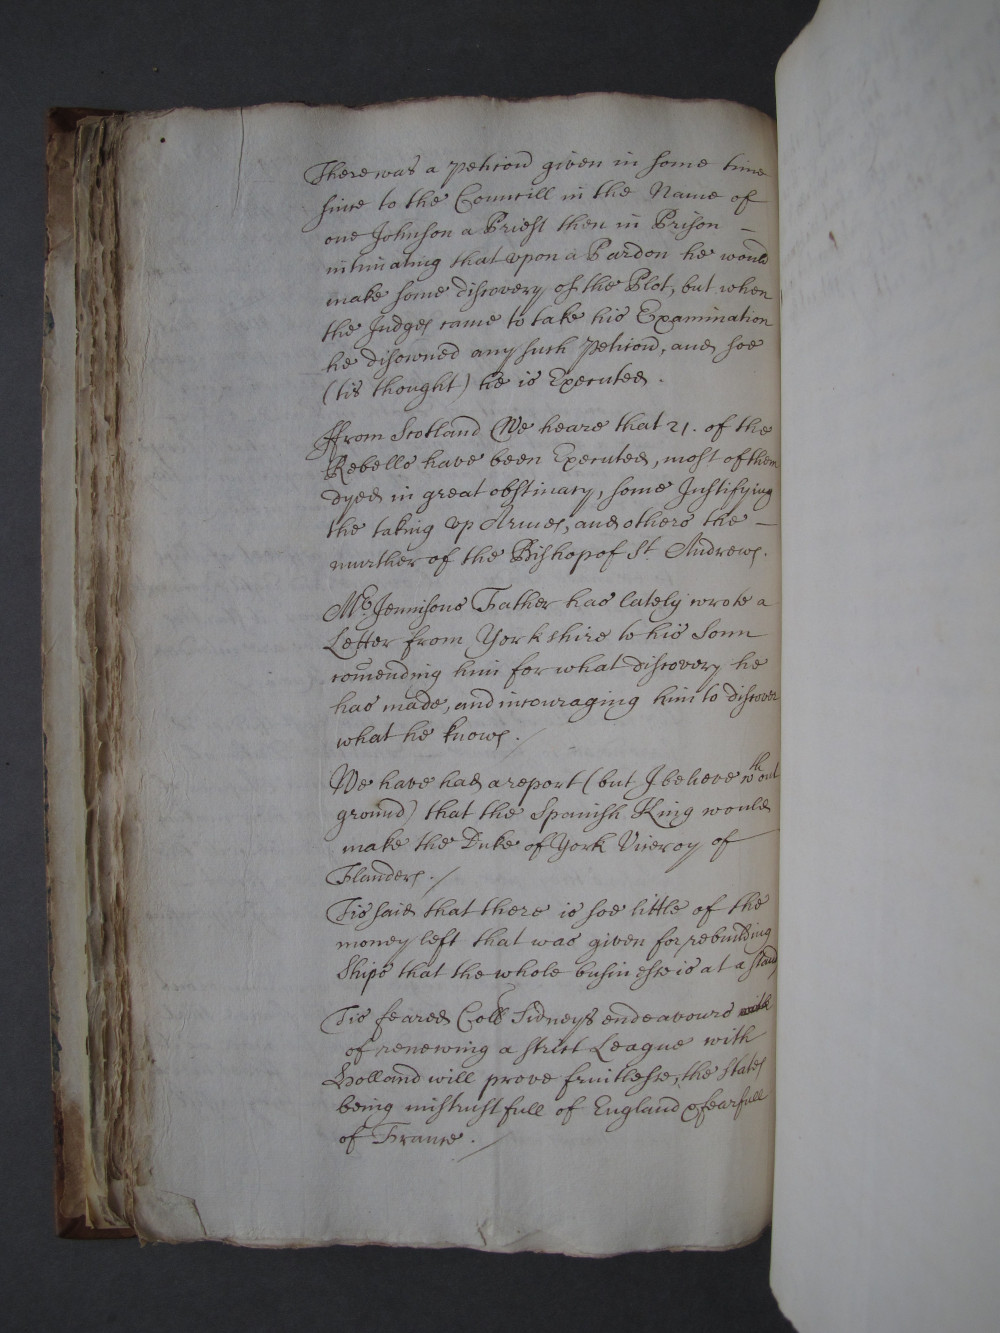 There was a petition given in some time
since to the Councill in the Name of
one Johnson a Priest then in Prison –
intimating that upon a Pardon he would
make some discovery of the Plot, but when
the Judges came to take his Examination
he disowned any such petition, and soe
(tis thought) he is Executed.
ffrom Scotland We heare that 21. of the
Rebells have been Executed, most of them
dyed in great obstinacy, some Justifying
the taking up Armes, and others the –
murther of the Bishop of St. Andrews.
Mr. Jennisons Father has lately wrote a
Letter from Yorkshire to his Sonn
com̄ending him for what discovery he
has made, and incouraging him to discover
what he knows.
We have had a report (but I beleeve wthout
ground) that the Spanish King would
make the Duke of York Viceroy of
Flanders.
Tis said that there is soe little of the
money left that was given for rebuilding
Ships that the whole business is at a stand
Tis feared Coll Sidneys endeavours
of renewing a strict League with
Holland will prove fruitlesse, the States
being mistrustfull of England & fearfull
of France.